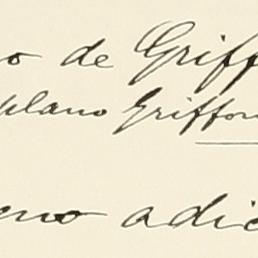 o de Griff
plano Griffon
eno adic